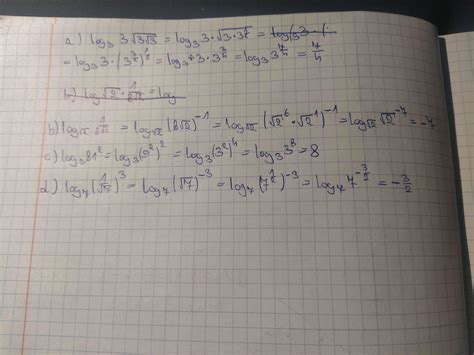 a) log₃ 3√3√3 = log₃ 3·√3·3^½ = log₃(3·(
= log₃ 3·(3^(3/2))^½ = log₃ 3·3^(3/4) = log₃ 3^(7/4) = 7/4
b) log √2 · 1/8√2 = log
b) log_√2 1/8√2 = log_√2 (8√2)⁻¹ = log_√2 (√2⁶·√2¹)⁻¹ = log_√2 √2⁻⁷ = -7
c) log₃ 81² = log₃(9²)² = log₃(3²)⁴ = log₃ 3⁸ = 8
d) log₇(1/√7)³ = log₇(√7)⁻³ = log₇(7^½)⁻³ = log₇ 7^(-3/2) = -3/2